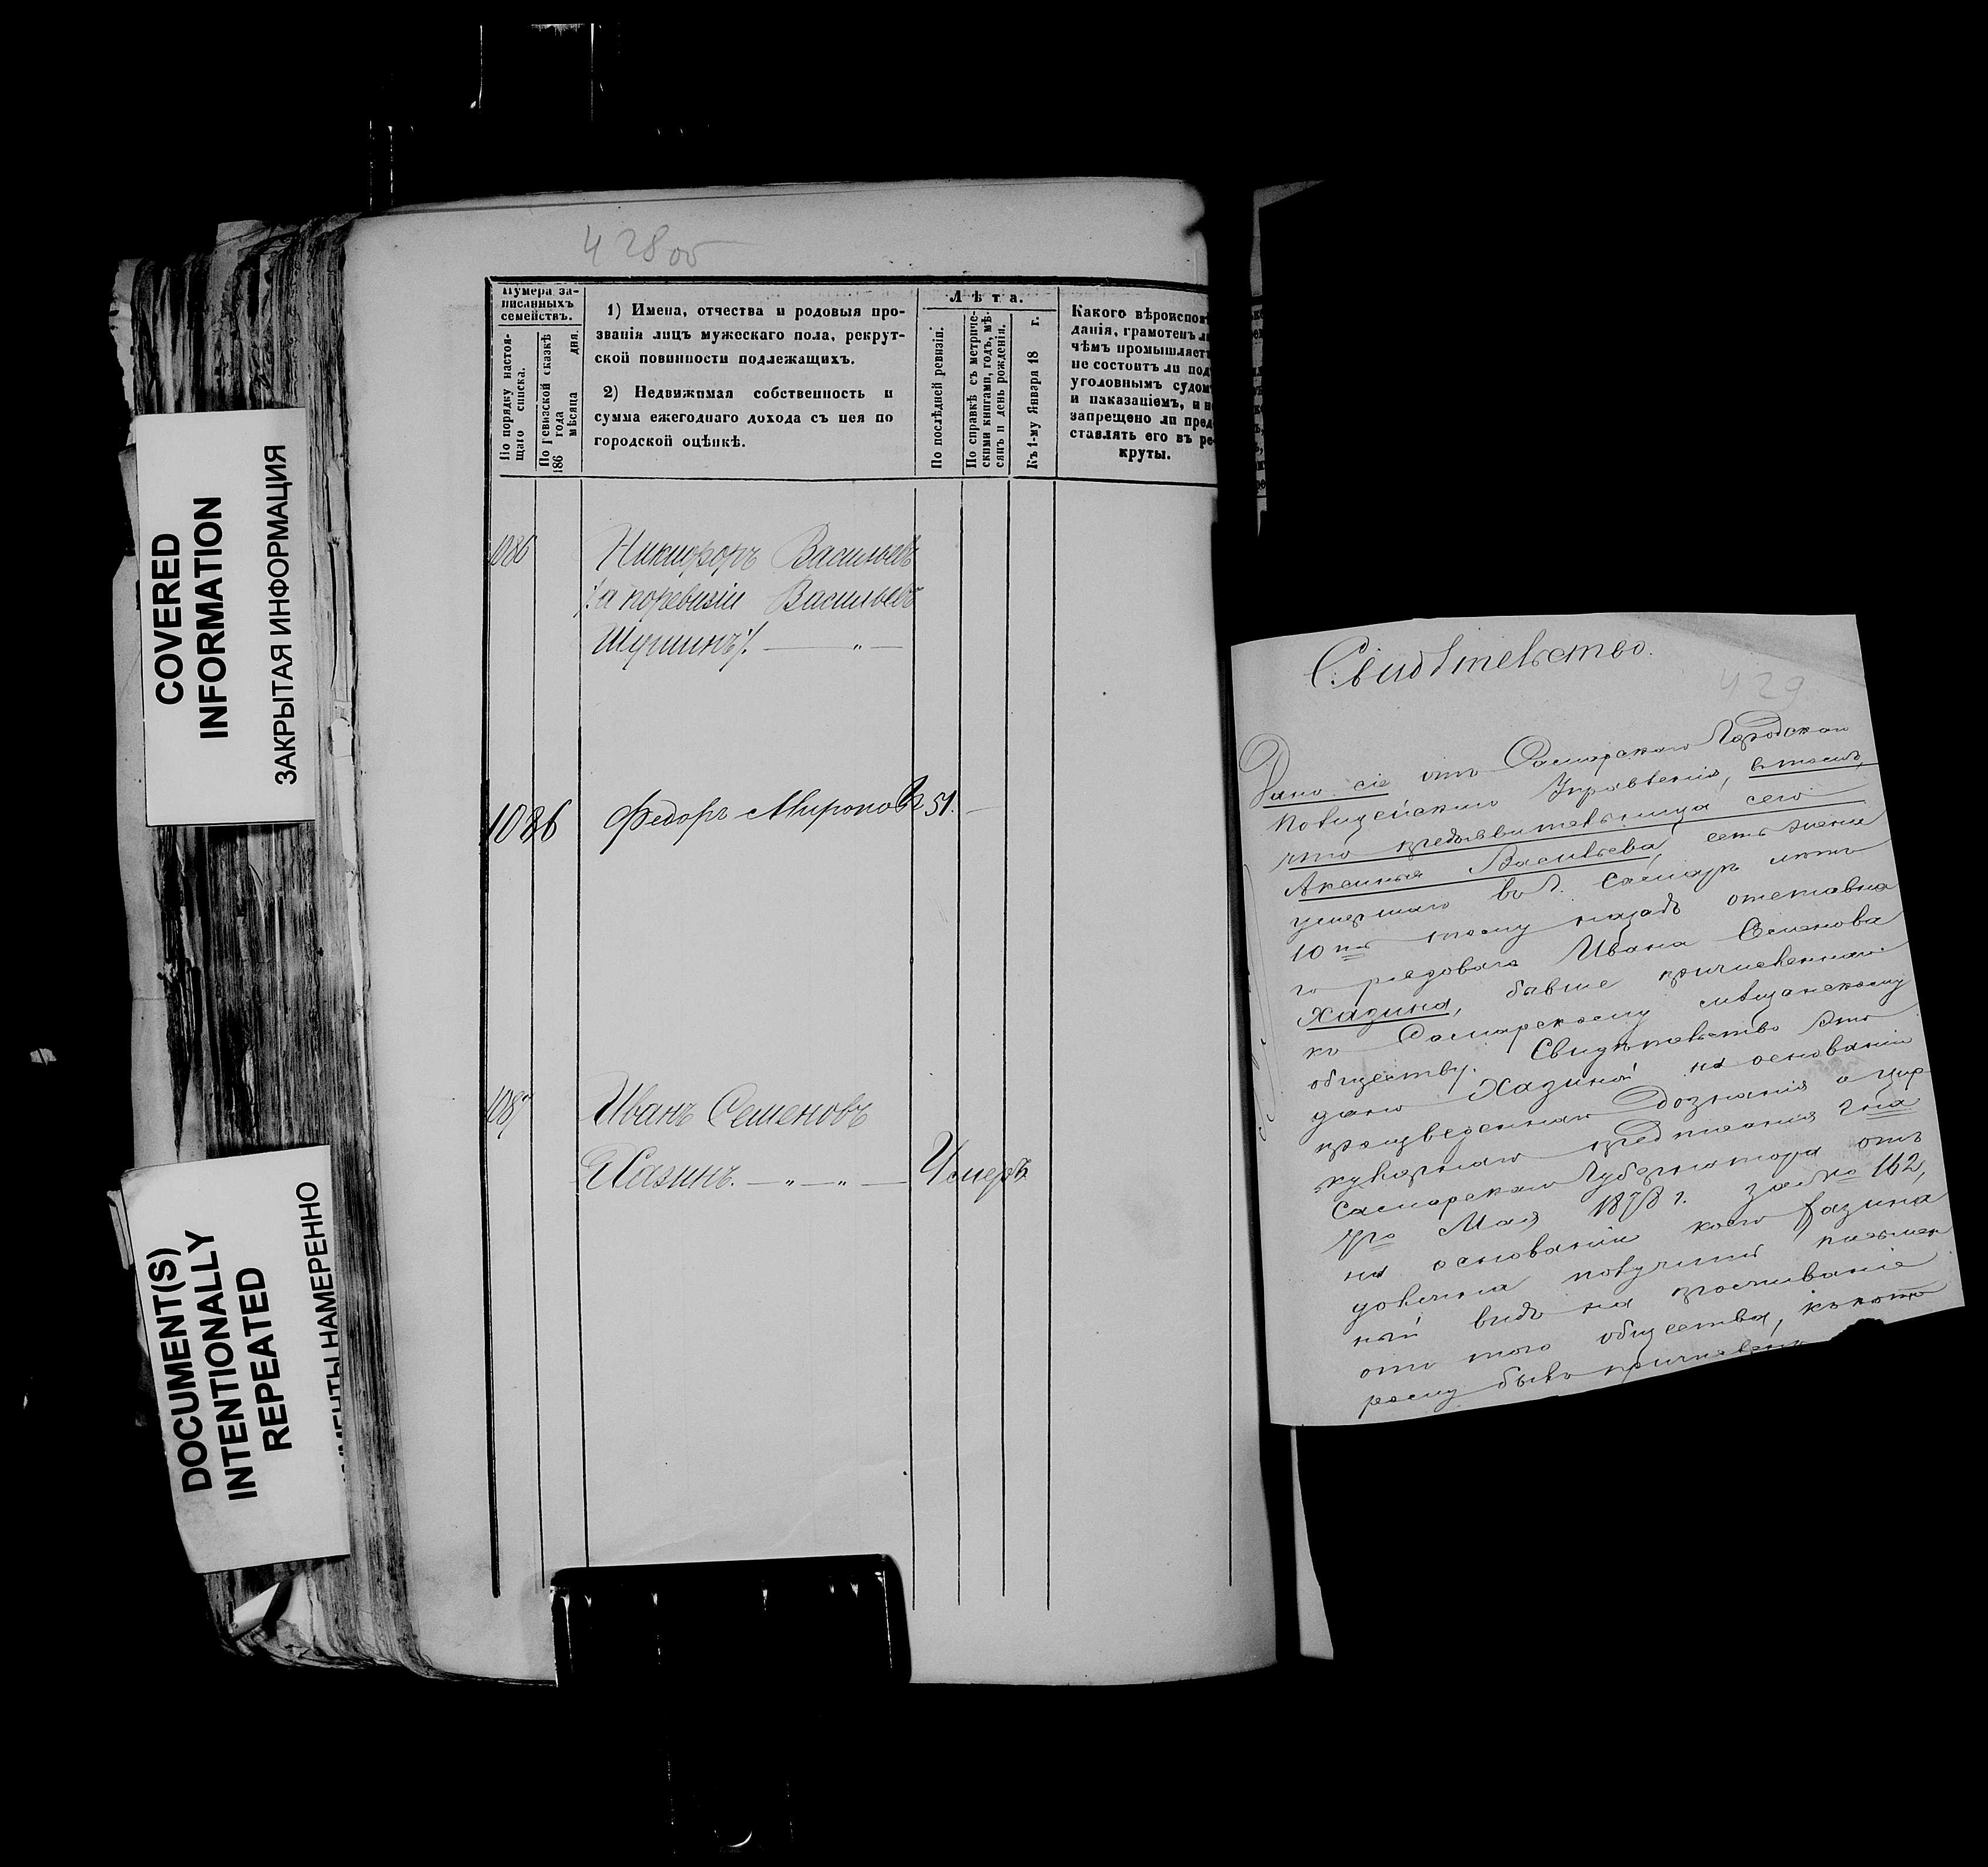 COVERED
INFORMATION
ЗАКРЫТАЯ ИНФОРМАЦИЯ
DOCUMENT(S)
INTENTIONALLY
REPEATED
НАМЕРЕННО
428 об
Нумера за-
писанныхъ
семействъ.
По порядку настоя-
щаго списка.
По ревизской сказкѣ
186 года
мѣсяца дня.
1) Имена, отчества и родовыя про-
званія лицъ мужескаго пола, рекрут-
ской повинности подлежащихъ.
2) Недвижимая собственность и
сумма ежегоднаго дохода съ нея по
городской оцѣнкѣ.
Лѣта.
По послѣдней ревизіи.
По справкѣ съ метриче-
скими книгами, годъ, мѣ-
сяцъ и день рожденія.
Къ 1-му Января 18 г.
Какого вѣроиспов
данія, грамотенъ л
чѣмъ промышляет
не состоитъ ли под
уголовнымъ судом
и наказаніемъ, и н
запрещено ли пред
ставлять его въ ре-
круты.
1086 Никифоръ Васильевъ
/:а поревизіи Васильевъ
Шушинъ:/. — „ —
1086 Федоръ Мироновъ 51. —
1087 Иванъ Семеновъ
Хазинъ. — „ — „ — Умеръ
Свидѣтельство.
429
Дано сіе отъ Самарскаго Городскаго
Полицейскаго Управленія, въ томъ,
что предъявительница сего
Аксинья Васильева, есть жена
умершаго въ г. Самарѣ лѣтъ
10ть тому назадъ отставна
го рядоваго Ивана Семенова
Хазина, бывше причисленнаго
къ Самарскому мѣщанскому
обществу. Свидѣтельство это
дано Хазиной на основаніи
произведеннаго дознанія и цир
кулярнаго предписанія Гна
Самарскаго Губернатора отъ
Мая 1878 г. за № 162,
на основаніи коего Хазина
должна получить письмен
ный видъ на проживаніе
отъ того общества, къ кото
рому былъ причисленъ